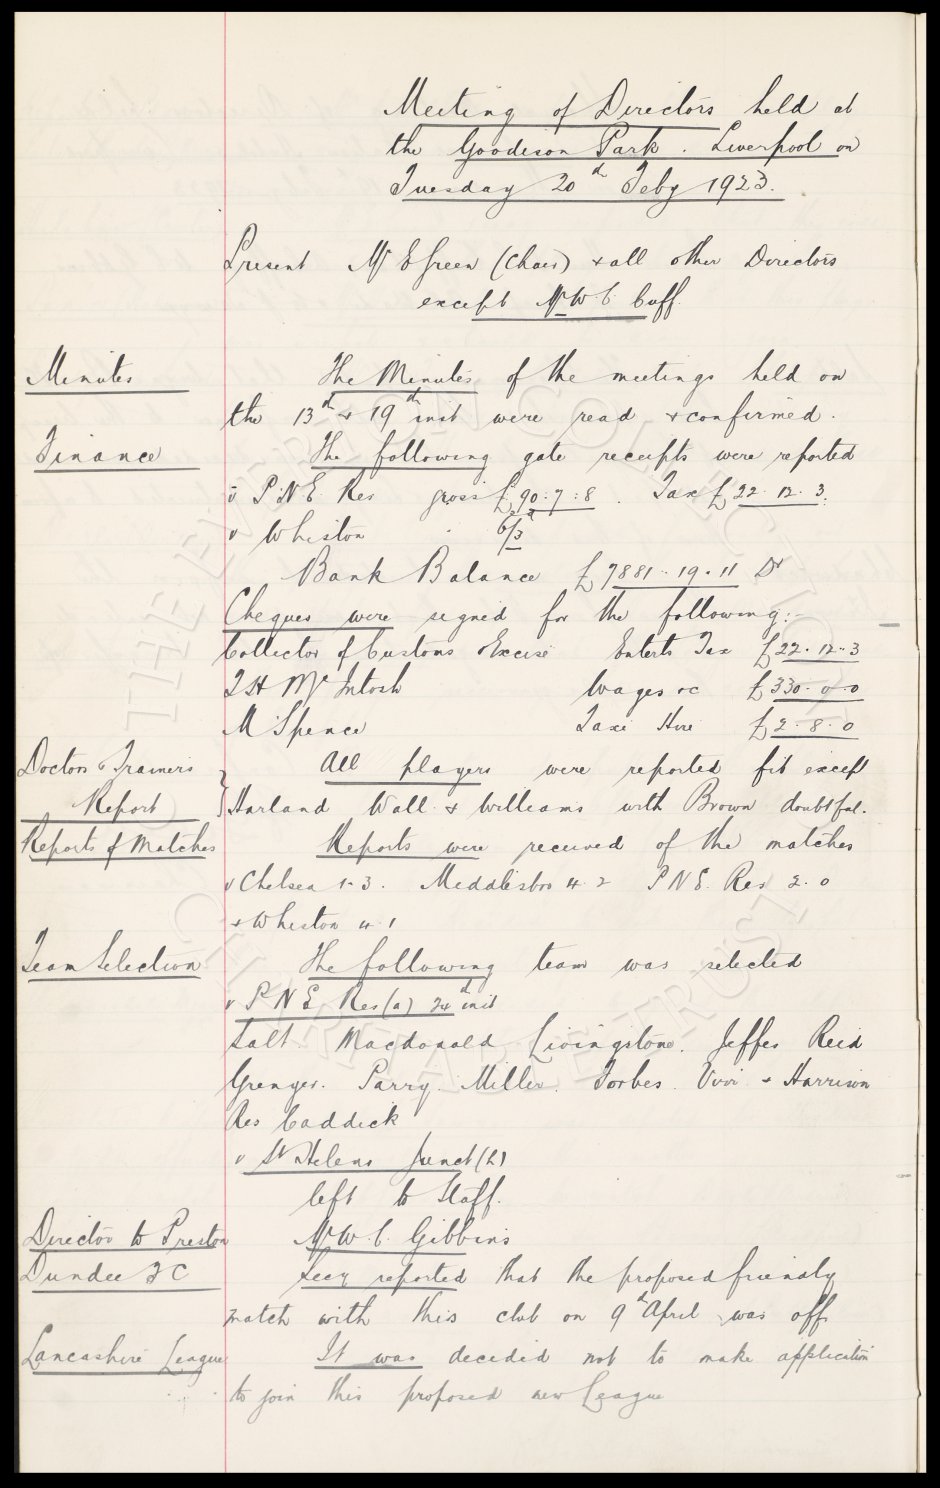 Meeting of Directors held at
the Goodison Park. Liverpool on
Tuesday 20th Feby 1923.
Present Mr E Green (Chair) + all other Directors
except Mr W. C. Cuff.
Minutes
The Minutes of the meetings held on
the 13th + 19th inst were read + confirmed.
Finance
The following gate receipts were reported
v P.N.E. Res gross £90:7:8. Tax £22.12.3.
v Whiston 6/3
Bank Balance £7881.19.11 Dr
Cheques were signed for the following:-
Collector of Customs & Excise Enterts Tax £22.12.3
T H McIntosh Wages &c £330.0.0
M Spence Taxi Hire £2.8.0
Doctors & Trainers
Report
All players were reported fit except
Harland Wall & Williams with Brown doubtful.
Reports of Matches
Reports were received of the matches
v Chelsea 1-3. Middlesbro 4.2 P N E. Res 2.0
+ Whiston 4.1
Team Selection
The following team was selected
v P N E Res (a) 24th inst
Salt. Macdonald Livingstone. Jeffes Reid
Grenyer. Parry. Miller. Forbes. Virr + Harrison
Res Caddick
v St Helens Junct (h)
left to Staff.
Director to Preston
Mr W. C. Gibbins
Dundee F C
Secy reported that the proposed friendly
match with this club on 9th April was off
Lancashire League
It was decided not to make application
to join this proposed new League
THE EVERTON COLLECTION
CHARITABLE TRUST